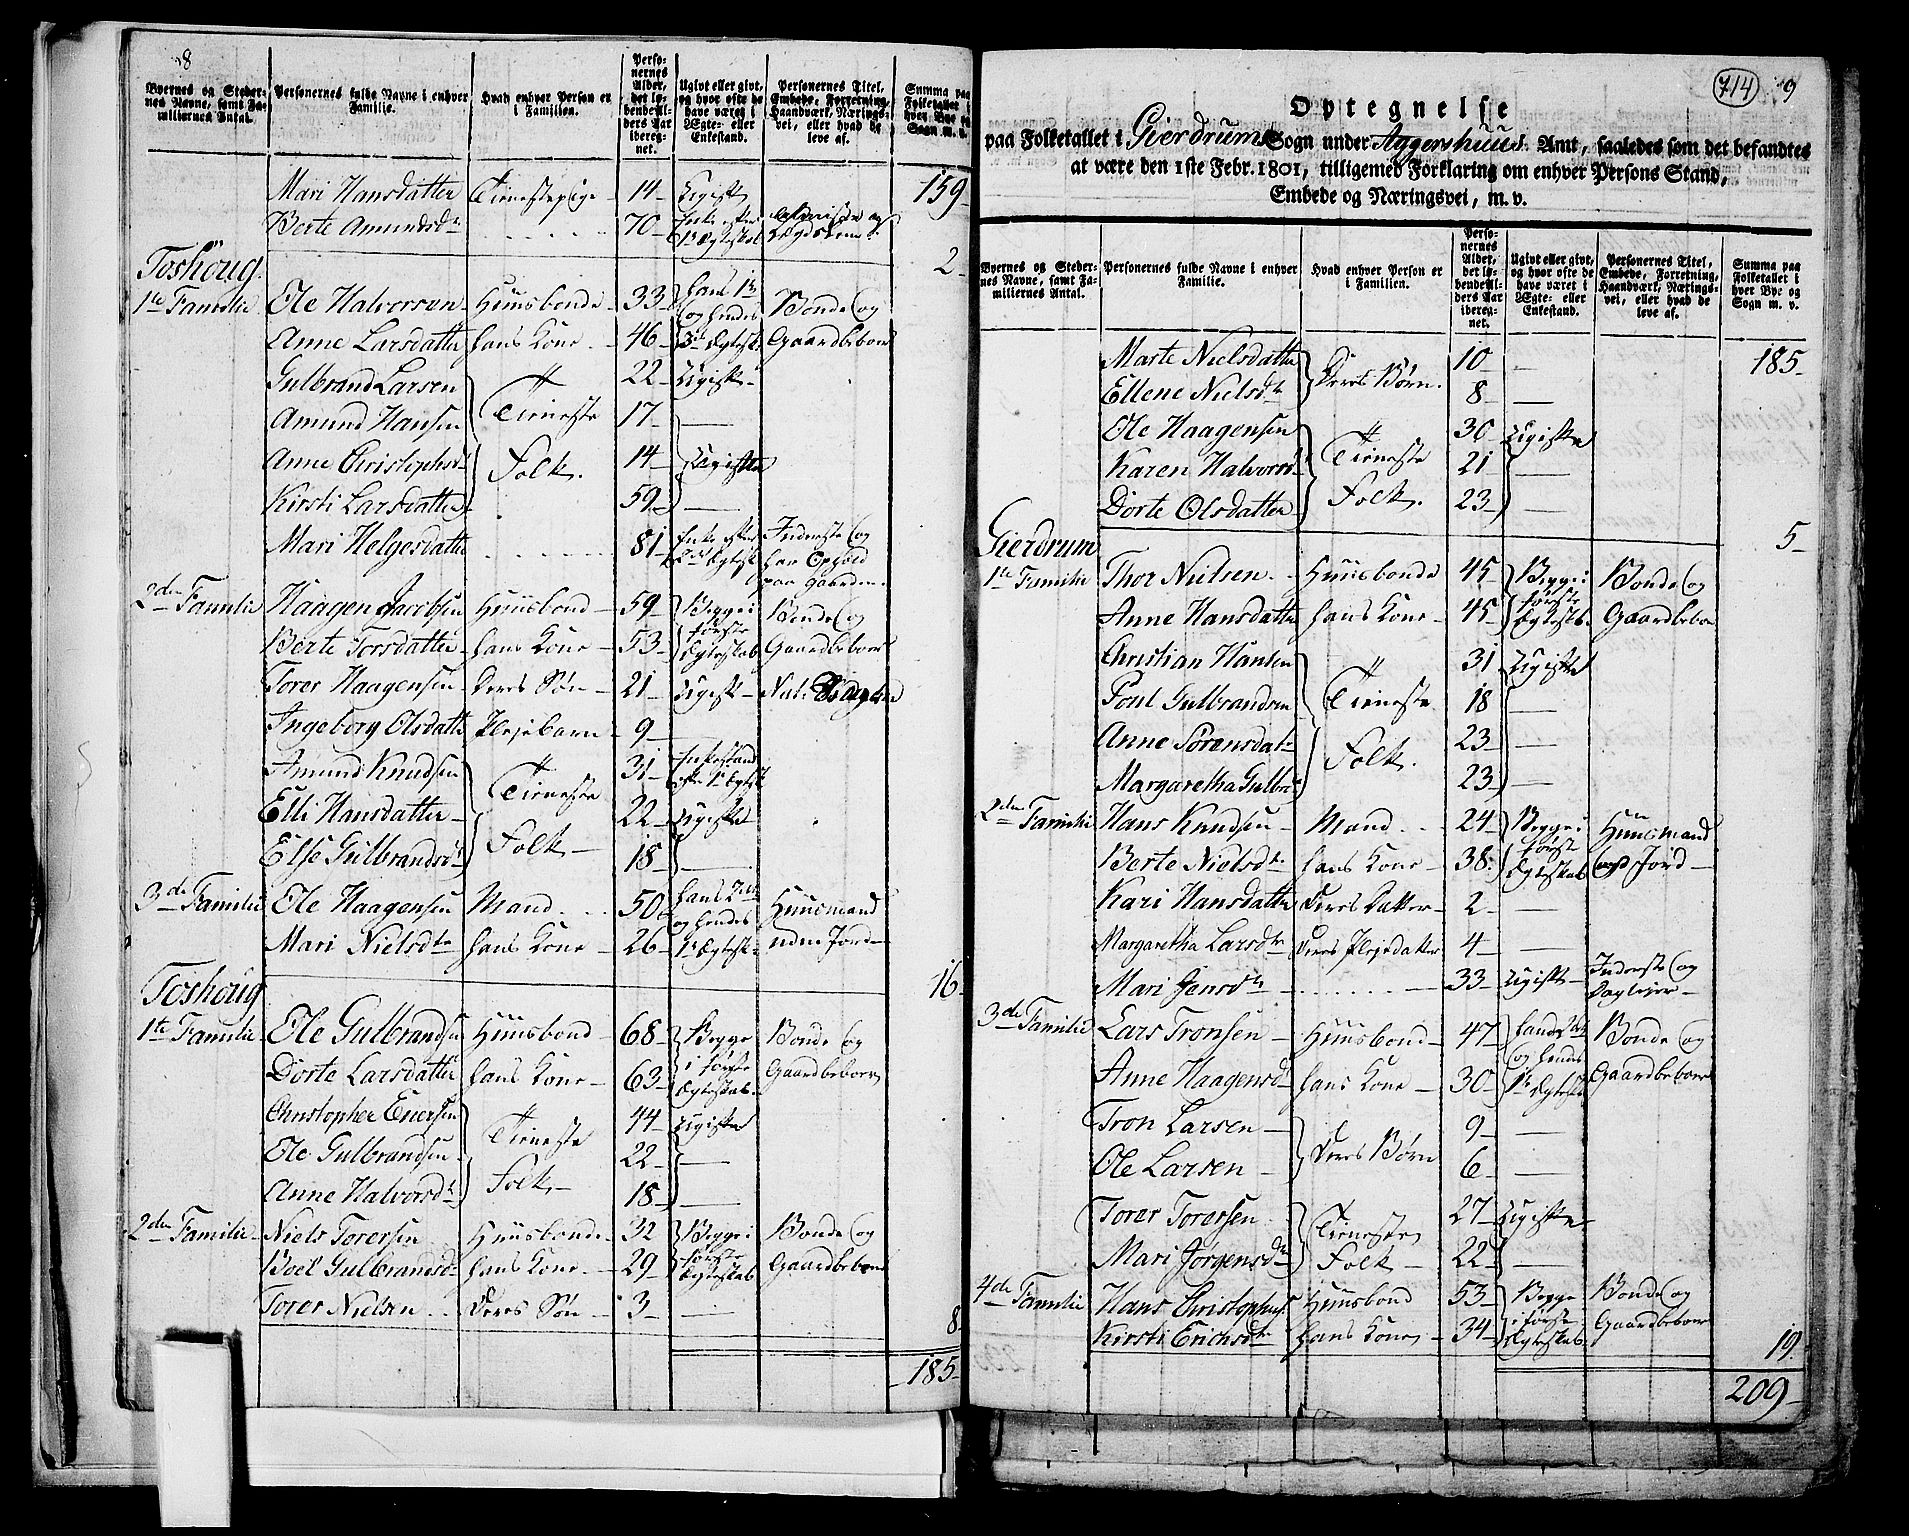 8
Byernes og Steder-
nes Navne, samt Fa-
miliernes Antal.
Personernes fulde Navne i enhver
Familie.
Hvad enhver Person er
i Familien.
Perso-
nernes
Alder,
det lø-
bende Al-
ders Aar
iberegnet.
Ugivt eller givt,
og hvor ofte de
have været i
Ægte- eller
Enkestand.
Personernes Titel,
Embede, Forretning,
Haandværk, Nærings-
vei, eller hvad de
leve af.
Summa paa
Folketallet i
hver Bye og
Sogn m. v.
Mari Hansdatter Tienestepige 14 Ugift 159
Berte Amundsdr 70 Enke efter 1te Ægteskab
2
Toshoug
1te Familie Ole Halvorsen Huusbonde 33 hans 1te og hendes 3die Ægtesk. Bonde og Gaardbeboer
Anne Larsdatter hans Kone 46
Gulbrand Larsen Tieneste Folk 22 Ugifte
Amund Hansen 17
Anne Christophsd 14 Ugifte
Kirsti Larsdatter 59
Mari Helgesdatter 81 Enke efter 2det Ægtesk. Inderste og har Ophold paa Gaarden
2den Familie Haagen Jacobsen Huusbond 59 Begge i første Ægteskab Bonde og Gaardbeboer
Berte Torsdatter hans Kone 53
Torer Haagensen Deres Søn 21 Ugift
Ingeborg Olsdattr Plejebarn 9
Amund Knudsen Tieneste Folk 31 Enkestand efter 1te Ægtesk.
Elli Hansdatter 22 Ugifte
Else Gulbrandsdr 18
3de Familie Ole Haagensen Mand 50 hans 2det og hendes 1te Ægtesk. Huusmand uden Jord
Mari Nielsdtr hans Kone 26
16
Toshoug
1te Familie Ole Gulbrandsen Huusbond 68 Begge i første Ægteskab Bonde og Gaardbeboer
Dorte Larsdatter hans Kone 63
Christopher Enersen Tieneste Folk 44 Ugifte
Ole Gulbrandsen 22
Anne Halvorsdtr 18
2den Familie Niels Torersen Huusbonde 32 Begge i første Ægteskab Bonde og Gaardbeboer
Boel Gulbrandsdr hans Kone 29
Torer Nielsen Deres Søn 3
8
185
714 9
Optegnelse
paa Folketallet i Gierdrums Sogn under Aggershuus Amt, saaledes som det befandtes
at være den 1ste Febr. 1801, tilligemed Forklaring om enhver Persons Stand,
Embede og Næringsvei, m. v.
Byernes og Steder-
nes Navne, samt Fa-
miliernes Antal.
Personernes fulde Navne i enhver
Familie.
Hvad enhver Person er
i Familien.
Perso-
nernes
Alder,
det lø-
bende Al-
ders Aar
ibereg-
net.
Ugivt eller givt,
og hvor ofte de
have været i
Ægte- eller
Enkestand.
Personernes Titel,
Embede, Forretning,
Haandværk, Nærings-
vei, eller hvad de
leve af.
Summa paa
Folketallet i
hver Bye og
Sogn m. v.
Marte Nielsdatter Deres Børn 10 185
Ellene Nielsdtr 8
Ole Haagensen Tieneste Folk 30 Ugifte
Karen Halvorsd 21
Dorte Olsdatter 23
5
Gierdrum
1te Familie Thor Nielsen Huusbonde 45 Begge i første Ægtesk. Bonde og Gaardbebor
Anne Hansdatter hans Kone 45
Christian Hansen Tieneste Folk 31 Ugifte
Poul Gulbrandsen 18
Anne Sørensdatr 23
Margaretha Gulbr 23
2den Familie Hans Knudsen Mand 24 Begge i først Ægteskab Huusmand med Jord
Berte Nielsdr hans Kone 38
Kari Hansdatter Deres Datter 2
Margaretha Larsdtr Deres Plejedatter 4
Mari Jensdtr 33 Ugift Inderste og Daglejer
3de Familie Lars Tronsen Huusbond 47 hans 2det og hendes 1te Ægtesk. Bonde og Gaardbeboer
Anne Haagensd hans Kone 30
Tron Larsen Deres Børn 9
Ole Larsen 6
Torer Torersen Tieneste Folk 27 Ugifte
Mari Jørgensdr 22
4de Familie Hans Christophs. Huusbond 53 Begge i første Ægteskab Bonde og Gaardbeboer
Kirsti Erichsdtr hans Kone 34
19
209